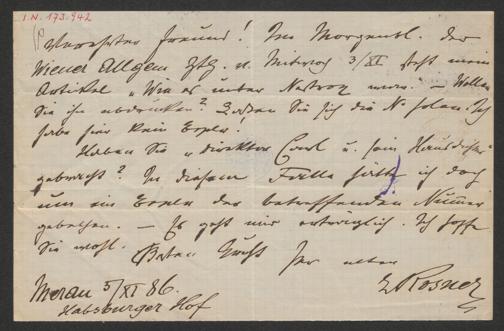 I.N. 173.942
Verehrter Freund! Im Morgenbl. der
Wiener Allgem Ztg. v. Mittwoch 3/XI steht mein
Artikel „Wie es unter Nestroy war. – Wollen
Sie ihn abdrucken? Lassen Sie sich die N holen. Ich
habe hier kein Expl.!
Haben Sie „Direktor Carl u. sein Hausdichter"
gebracht? In diesem Falle hätte ich doch
um ein Expl. der betreffenden Nummer
gebethen. – Es geht mir erträglich. Ich hoffe
Sie wohl. Besten Gruß Ihr alter
Meran 5/XI 86. LRosner
Habsburger Hof